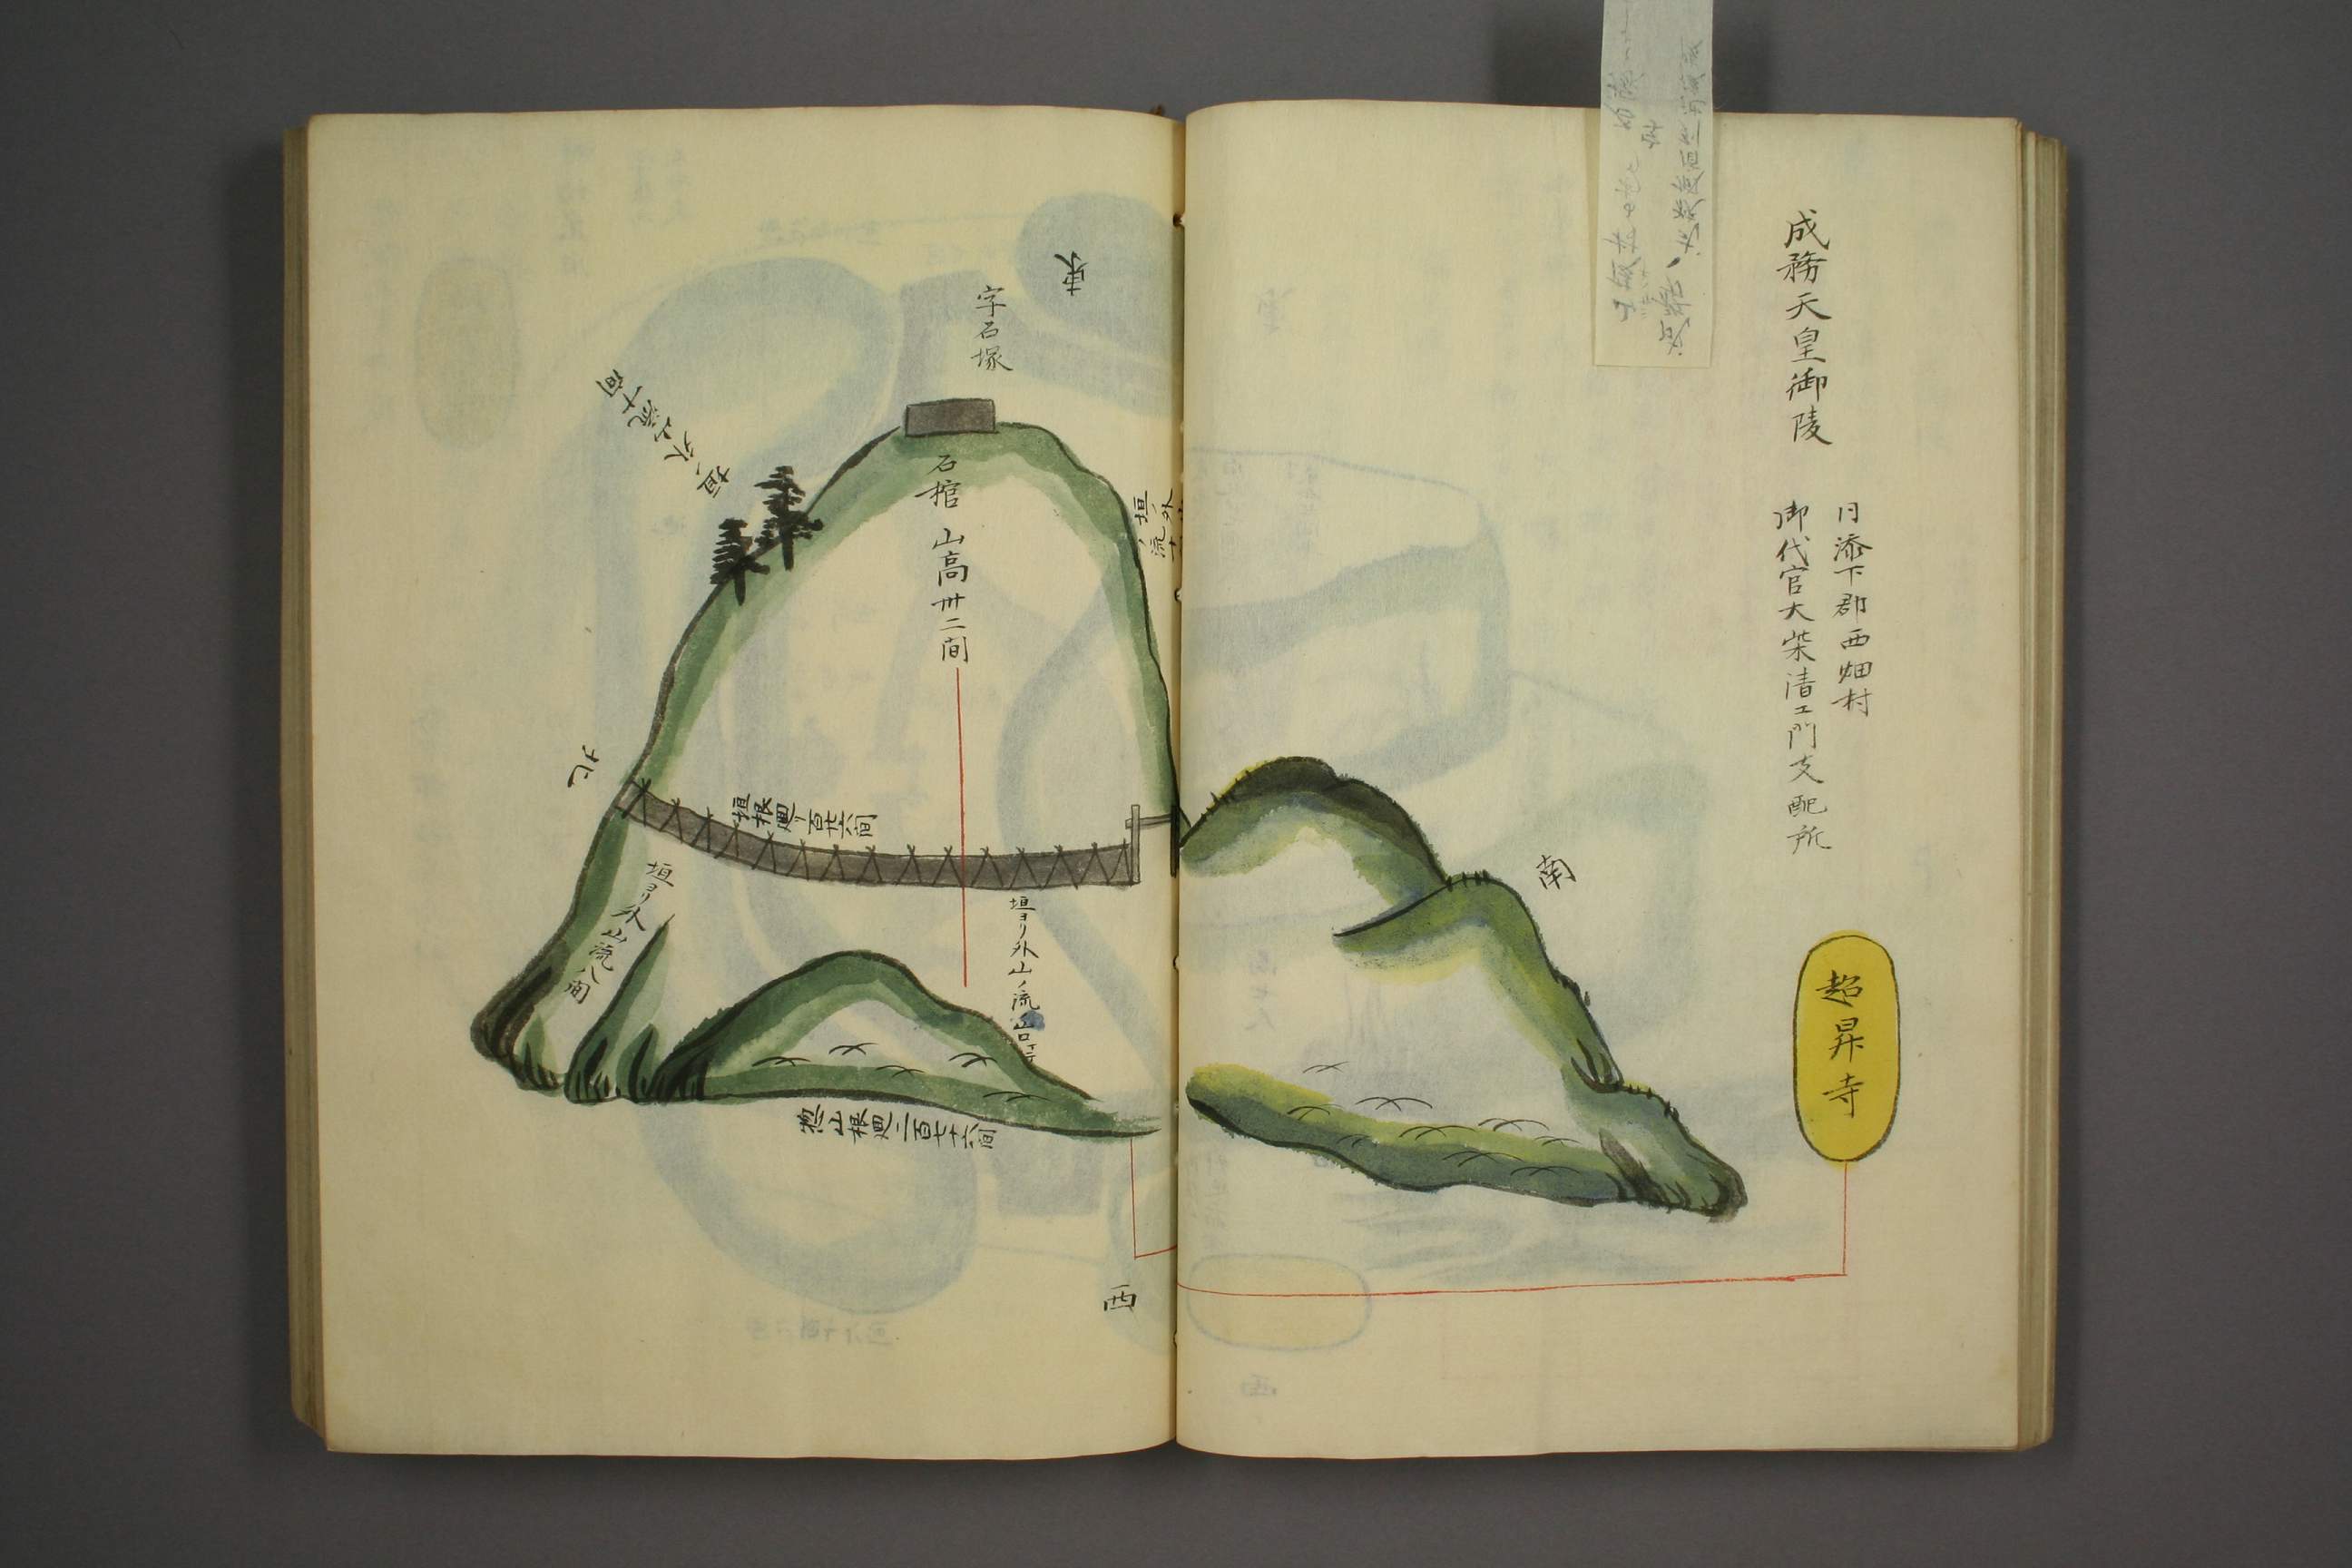 成務天皇御陵
同添下郡西畑村
御代官大柴清エ門支配所
超昇寺
南
東
字石塚
石棺
山高卅二間
垣ノ外
垣ノ外山流十間
北
垣根廻リ百廿六間
垣ヨリ外山流八間
垣ヨリ外山ノ流
惣山根廻二百七十六間
西